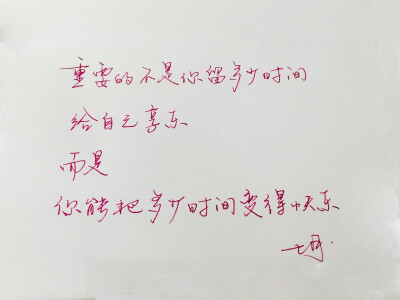 重要的不是你留多少时间
给自己享乐
而是
你能把多少时间变得快乐